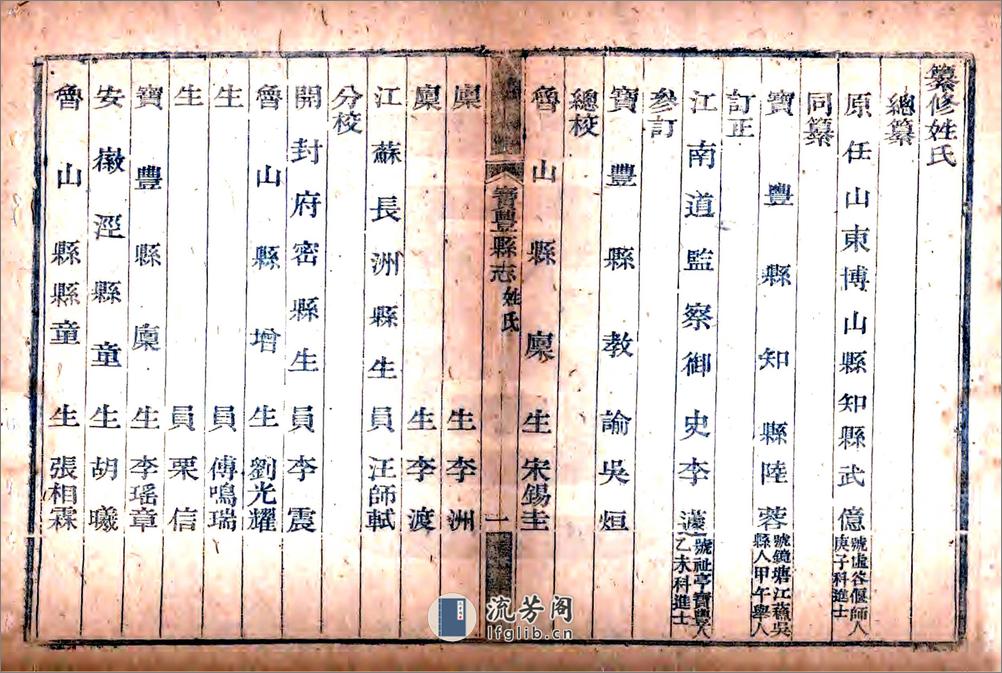 纂修姓氏
總纂
原任山東博山縣知縣武億號虛谷偃師人庚子科進士
同纂
寶豐縣知縣陸蓉號鏡塘江蘇吳縣人甲午舉人
訂正
江南道監察御史李漢號祉亭寶豐人乙未科進士
參訂
寶豐縣教諭吳烜
總校
魯山縣廩生宋錫圭
寶豐縣志 姓氏 一
廩生李洲
廩生李渡
江蘇長洲縣生員汪師軾
分校
開封府密縣生員李震
魯山縣增生劉光耀
生員傅鳴瑞
生員栗信
寶豐縣廩生李瑤章
安徽涇縣童生胡曦
魯山縣縣童生張相霖
流芳阁
lfglib.cn